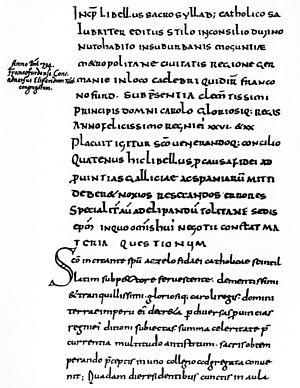 INCP LIBELLUS SACROSYLLAB; CATHOLICO SA
LUBRITER EDITUS STILO INCONSILIO DIUINO
NUTO HABITO INSUBURBANIS MOGUNTIAE
METROPOLITANE CIUITATIS REGIONE GER
MANIE INLOCO CAELEBRI QUI DICITUR FRANCO
NOFURD. SUB PRESENTIA CLEMENTISSIMI
PRINCIPIS DOMNI CAROLO GLORIOSIQ; REGIS
ANNO FELICISSIMO REGNI EI XXVI. &XX
PLACUIT IGITUR SCO UENERANDOQ; CONCILIO
QUATENUS HIC LIBELLUS P CAUSA FIDEI AD
PUINTIAS GALLICIAE AC SPANIARUM MITTI
DEBERE & NOXIOS RESECANDOS ERRORES
SPECIALITER AD ELIPANDUM TOLETANE SEDIS
EPM IN QUO OMIS HUI NEGOTII CONSTAT MA
TERIA QUESTIONUM
Anno Dni 794
Francofurdense Conc.
aduersus Elifandum Tolet.
congregatum.
Sco incitante spu ac zelo fidaei catholicae scintil
latim sub pectore feruescente. clementissimi
& tranquillissimi. gloriosiq; caroli regis domini
terrae imperu ei decreta p diuersas puincias
regni ei dicioni subiectas summa celeritate p
currentia multitudo antistitum. sacris obtem
perando pceptis in uno collegio cogregata conue
nit; Quadam die residentibus cunctis in aula